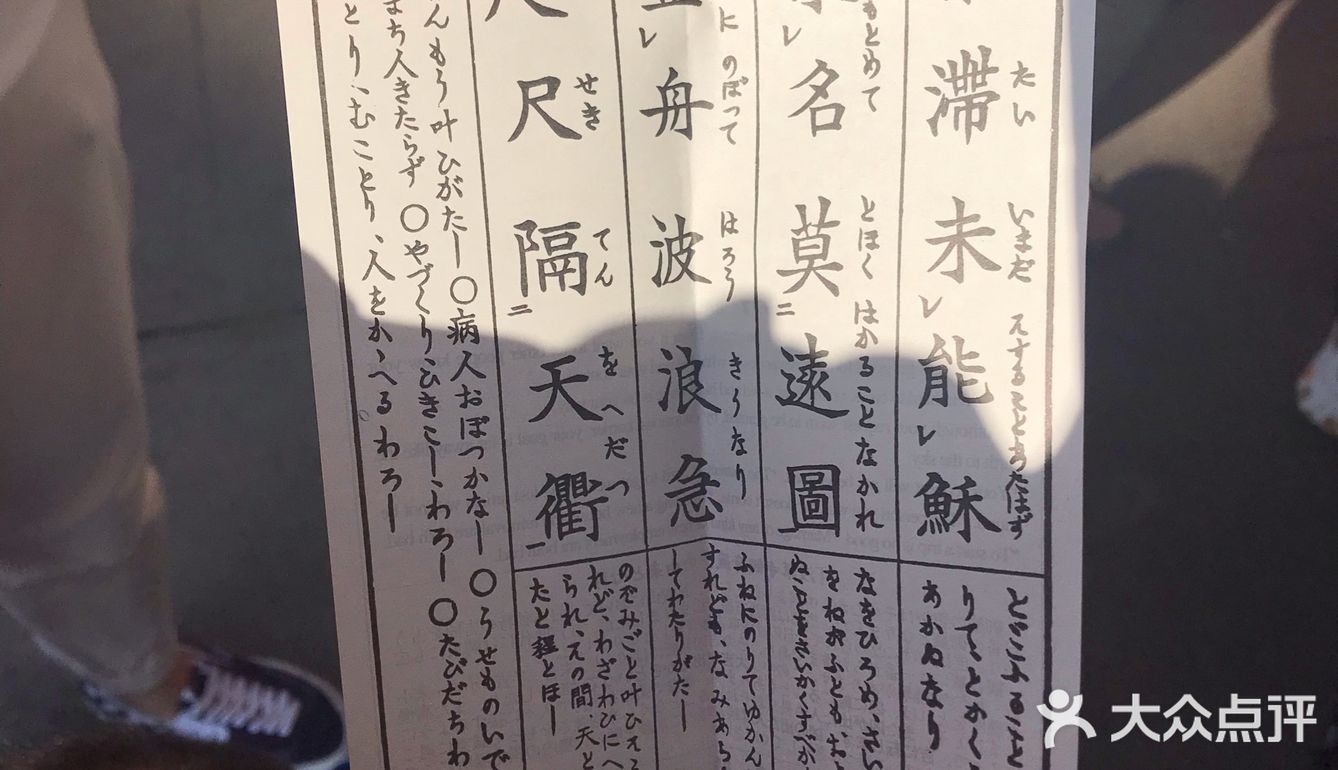 たい いまだ えすることあたはず
滯レ未レ能レ穌
とどこふること
りてとかく
あかぬなり
もとめて とほく はかることなかれ
レ名莫二遠圖一
なをひろめ、さい
をねがふともおよ
ぬことをさいかくすべか
に のぼつて はろう きうなり
レ舟波浪急
ふねにのりてゆかん
すれども、なみあら
してわたりがたー
せき てん を へだつ
尺隔二天衢一
のぞみごと叶ひえ
れど、わざわひにへ
られ、えの間、天と
たと程とほー
んもう叶ひがたー〇病人おぼつかなー〇うせものいで
まち人きたらず〇やづくりひきこーわろー〇たびだちわ
とり、むことり、人をかゝへるわろー
大众点评